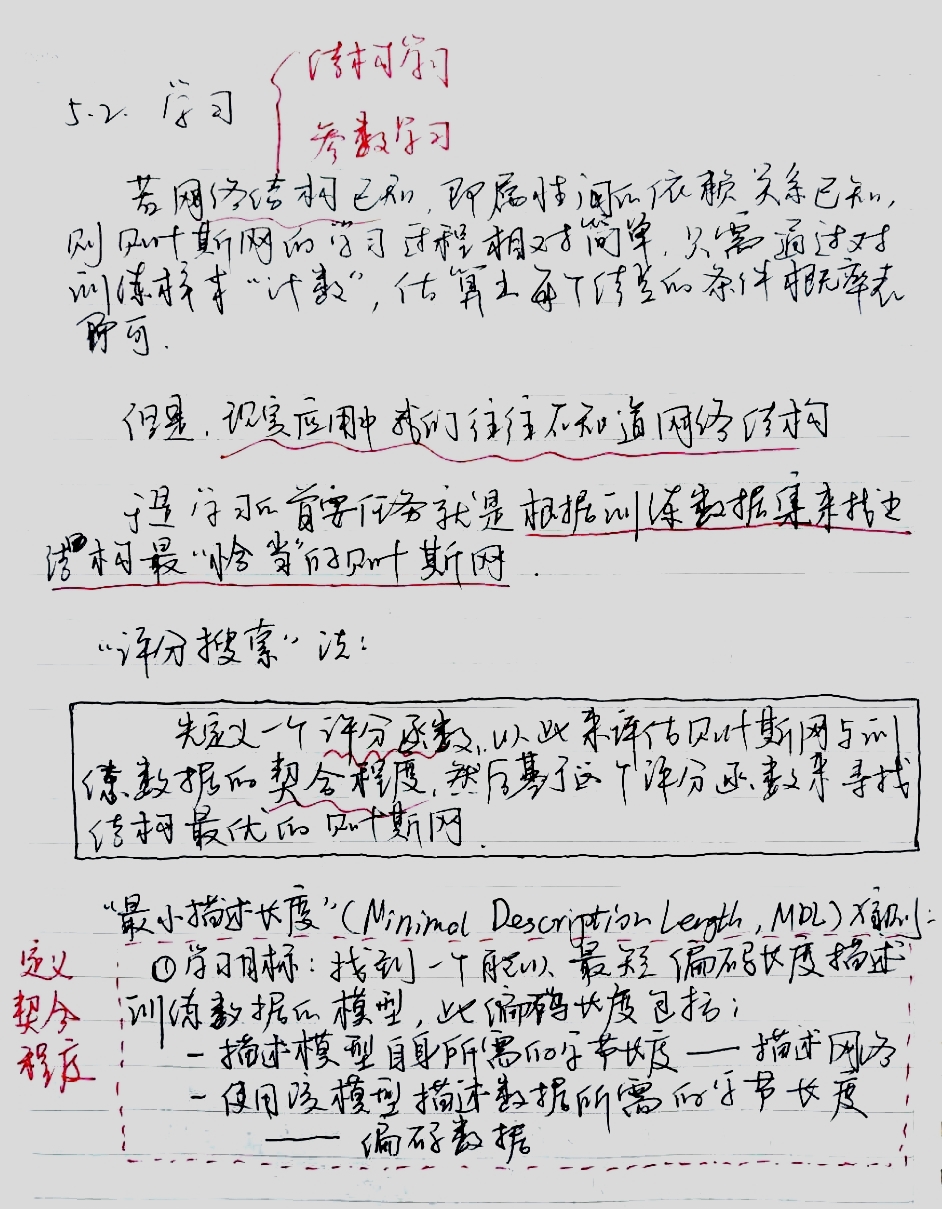 5.2. 学习
结构学习
参数学习
若网络结构已知,即属性间的依赖关系已知,
则贝叶斯网的学习过程相对简单,只需通过对
训练样本“计数”,估算出每个结点的条件概率表
即可.
但是,现实应用中我们往往不知道网络结构
于是学习的首要任务就是根据训练数据集来找出
结构最“恰当”的贝叶斯网.
“评分搜索”法:
先定义一个评分函数,以此来评估贝叶斯网与训
练数据的契合程度,然后基于这个评分函数来寻找
结构最优的贝叶斯网.
“最小描述长度”(Minimal Description Length, MDL)准则:
定义
契合
程度
①学习目标:找到一个能以最短编码长度描述
训练数据的模型,此编码长度包括:
- 描述模型自身所需的字节长度 —— 描述网络
- 使用该模型描述数据所需的字节长度
—— 编码数据